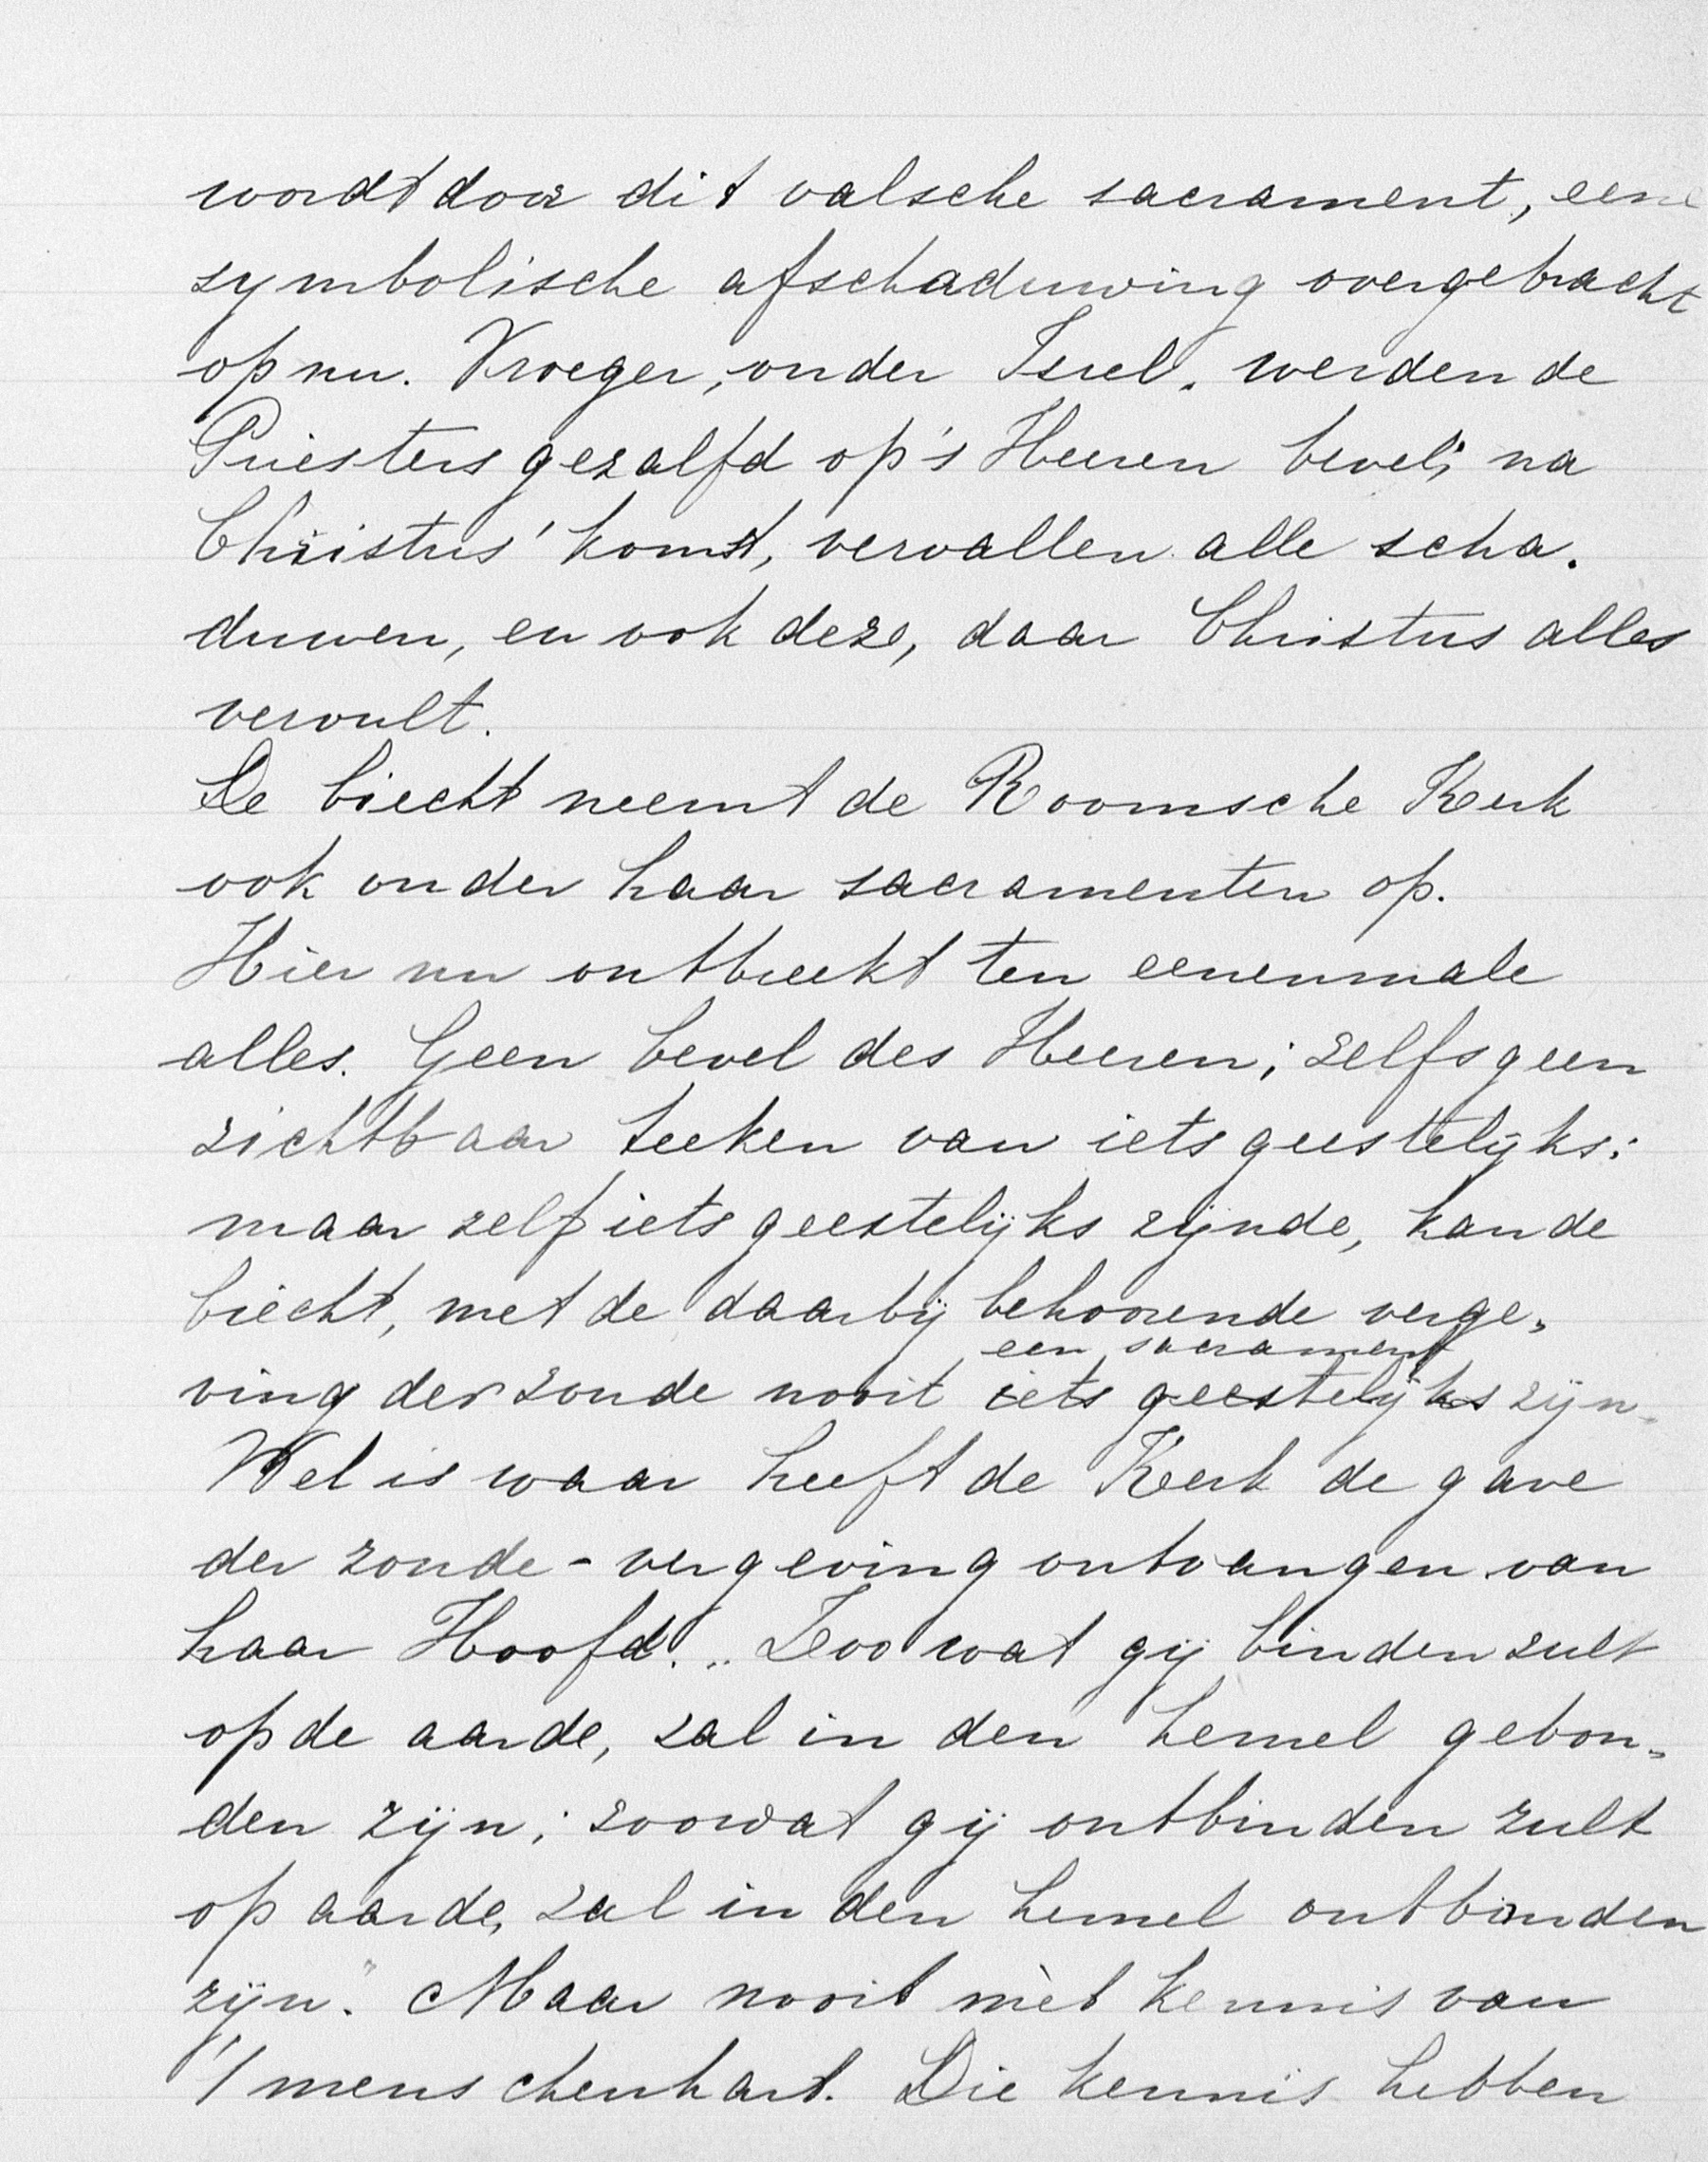 wordt door dit valsche sacrament, eene
symbolische afschaduwing overgebracht
op nu. Vroeger, onder Isrel. werden de
Priesters gezalfd op 's Heeren bevel; na
Christus' komst, vervallen alle scha.
duwen, en ook deze, daar Christus alles
vervult.
De biecht neemt de Roomsche Kerk
ook onder haar sacramenten op.
Hier nu ontbreekt ten eenenmale
alles. Geen bevel des Heeren; zelfs geen
zichtbaar teeken van iets geestelijks:
maar zelf iets geestelijks zijnde, kan de
biecht, met de daarbij behoorende verge„
een sacrament
ving der zonde nooit iets geestelijks zijn.
Wel is waar heeft de Kerk de gave
der zonde-vergeving ontvangen van
haar Hoofd. „Zoo wat gij binden zult
op de aarde, zal in den hemel gebon„
den zijn; zoowat gij ontbinden zult
op aarde, zal in den hemel ontbonden
zijn." Maar nooit mèt kennis van
't menschenhart. Die kennis hebben